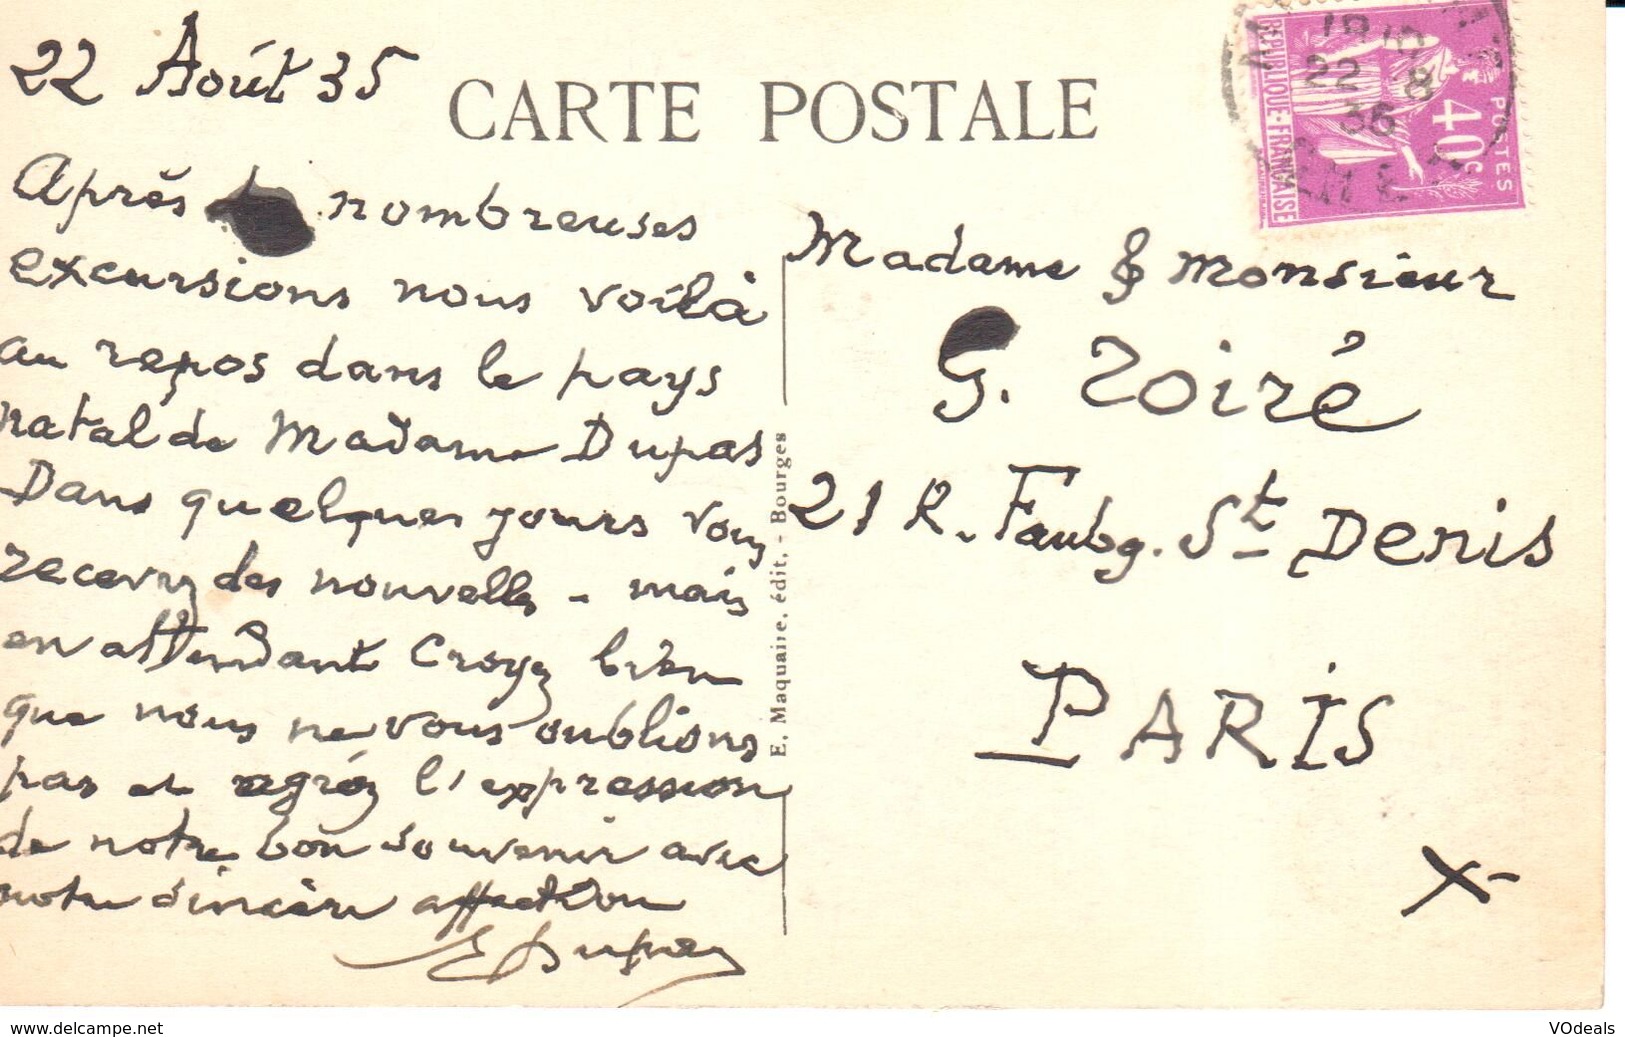 22 Août 35
CARTE POSTALE
Après nombreuses
excursions nous voilà
au repos dans le pays
natal de Madame Dupas
Dans quelques jours vous
recevrez des nouvelles - mais
en attendant Croyez bien
que nous ne vous oublions
pas et agréez l'expression
de notre bon souvenir avec
notre sincère affection
E Dupas
E. Maquaire, édit. - Bourges
REPUBLIQUE FRANÇAISE
POSTES
40c
22 8
36
Madame & Monsieur
G. Zoiré
21 R. Faubg. St Denis
PARIS
X-
www.delcampe.net
VOdeals